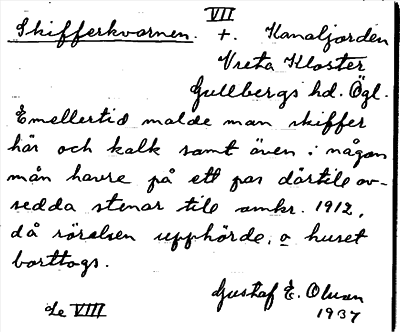 VII
Skifferkvarnen. +. Kanaljorden
Vreta Kloster
Gullbergs hd. Ögl.
Emellertid malde man skiffer
här och kalk samt även i någon
mån havre på ett par därtill av-
sedda stenar till omkr. 1912,
då rörelsen upphörde, o huset
borttogs.
Gustaf E. Olsson
1937
de VIII